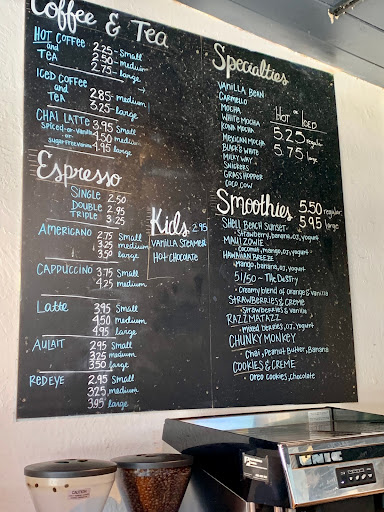 Coffee & Tea
HOT COFFEE and TEA
2.25 Small
2.50 medium
2.75 large
ICED COFFEE and TEA
2.85 medium
3.25 large
CHAI LATTE
Spiced-or-Vanilla or Sugar-Free Vanilla
3.95 Small
4.50 medium
4.95 large
Espresso
SINGLE 2.50
DOUBLE 2.95
TRIPLE 3.25
AMERICANO
2.75 Small
3.25 medium
3.50 large
CAPPUCCINO
3.75 Small
4.25 medium
Latte
3.95 Small
4.50 medium
4.95 large
AULAIT
2.95 Small
3.25 medium
3.50 large
RED EYE
2.95 Small
3.25 medium
3.95 large
Kids 2.95
VANILLA STEAMER
HOT CHOCOLATE
Specialties
VANILLA BEAN
CARMELLO
MOCHA
WHITE MOCHA
KONA MOCHA
MEXICAN MOCHA
BLACK & WHITE
MILKY WAY
SNICKERS
GRASSHOPPER
COCO COW
HOT or ICED
5.25 regular
5.75 large
Smoothies 5.50 regular
5.95 large
SHELL BEACH SUNSET
Strawberry, banana, OJ, yogurt
MAUI ZOWIE
Coconut, mango, OJ, yogurt
HAWAIIAN BREEZE
Mango, banana, OJ, yogurt
51/50 - The Dustry
Creamy blend of orange & vanilla
STRAWBERRIES & CREME
Strawberries & Vanilla
RAZZMATAZZ
mixed berries, OJ, yogurt
CHUNKY MONKEY
Chai, Peanut Butter, Banana
COOKIES & CREME
Oreo Cookies, chocolate
CAUTION
UNIC